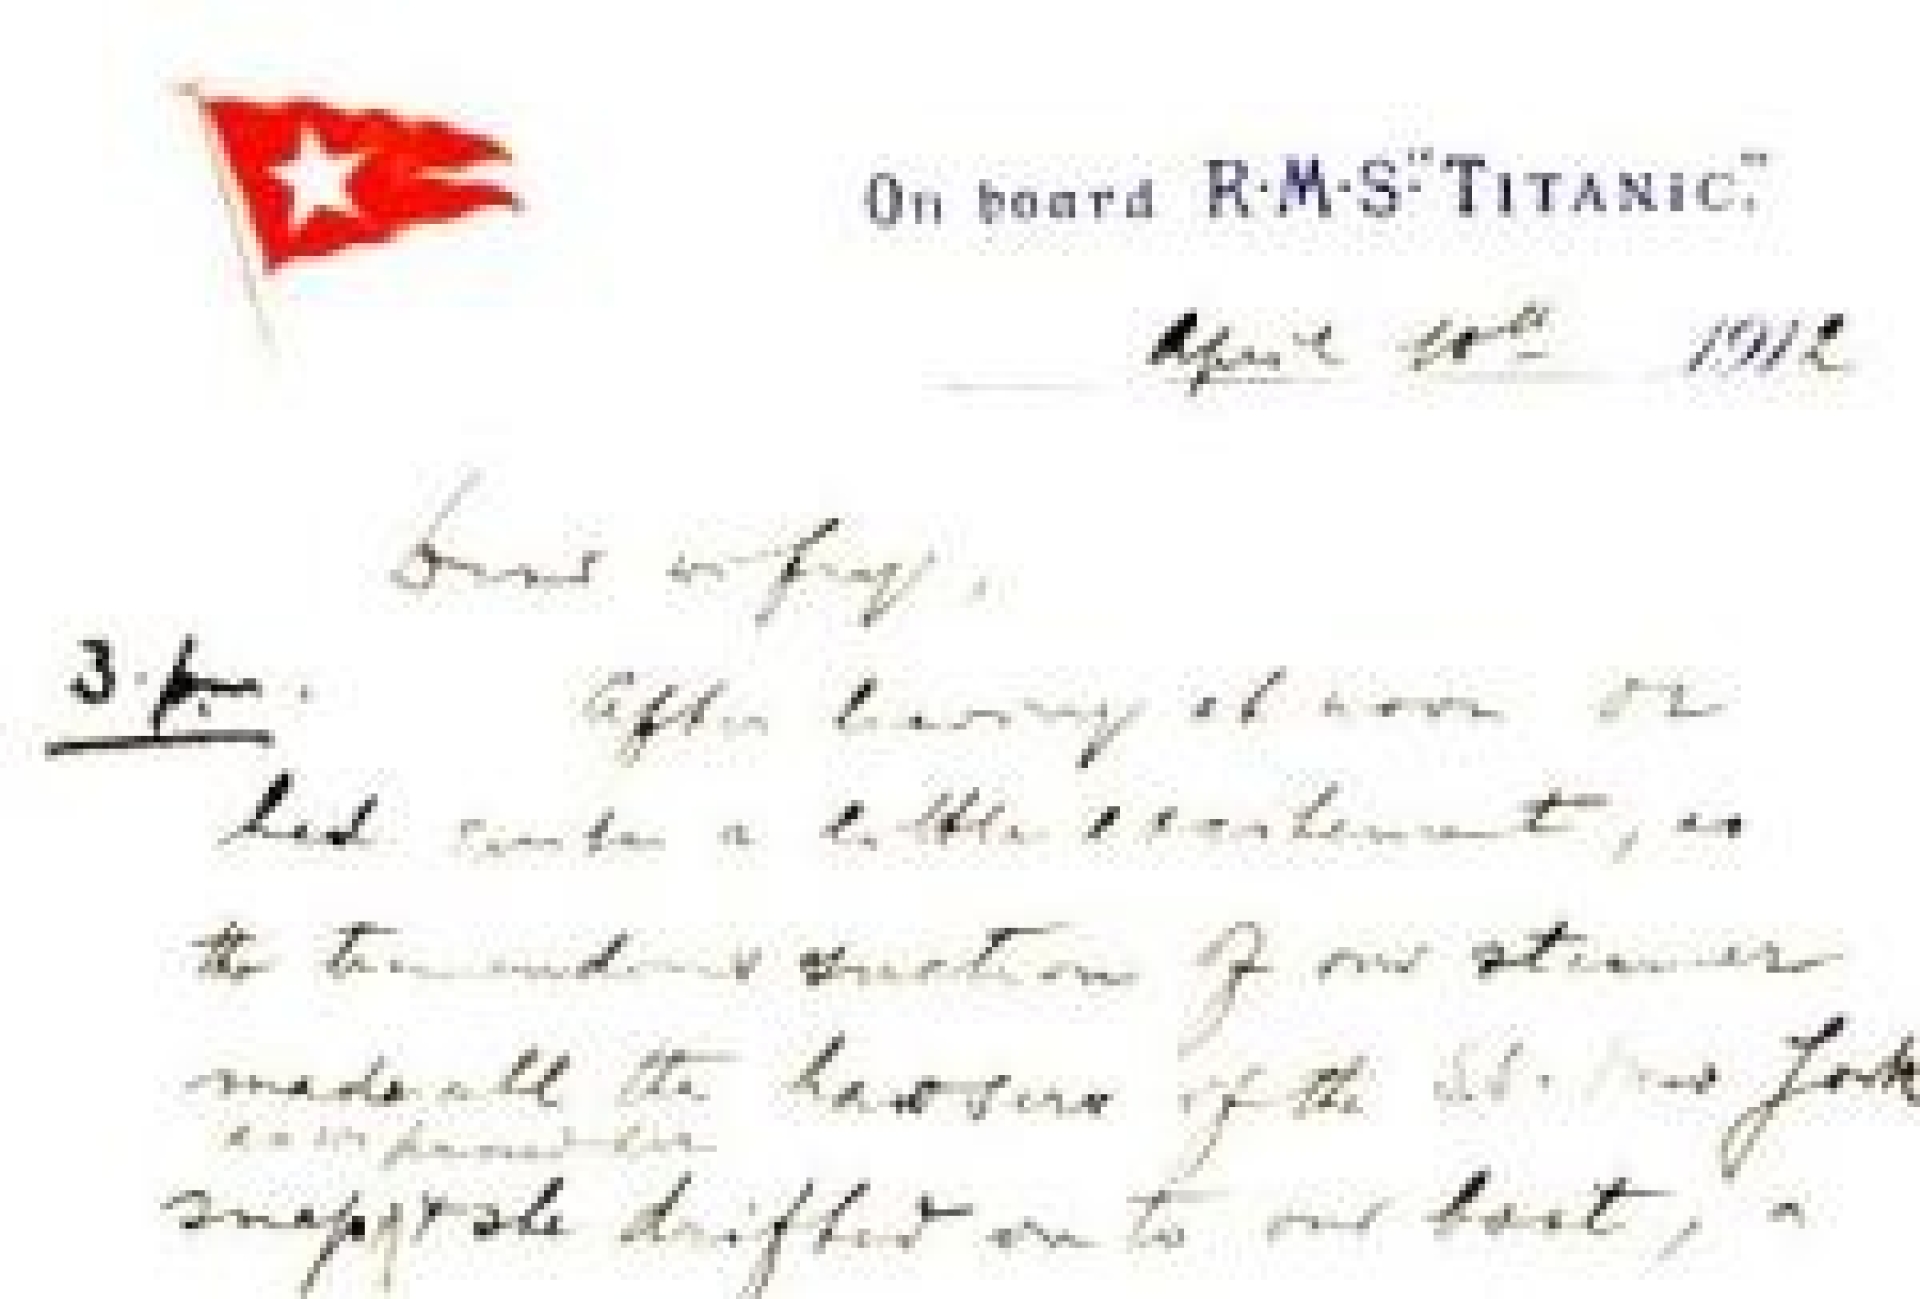 On board R·M·S· "TITANIC."
April 10th 1912
wifey,
3. pm.
After leaving at noon we
had quite a little excitement, as
the tremendous suction of our steamer
made all the hawsers of the SS. New York
snap & she drifted on to our boat, a